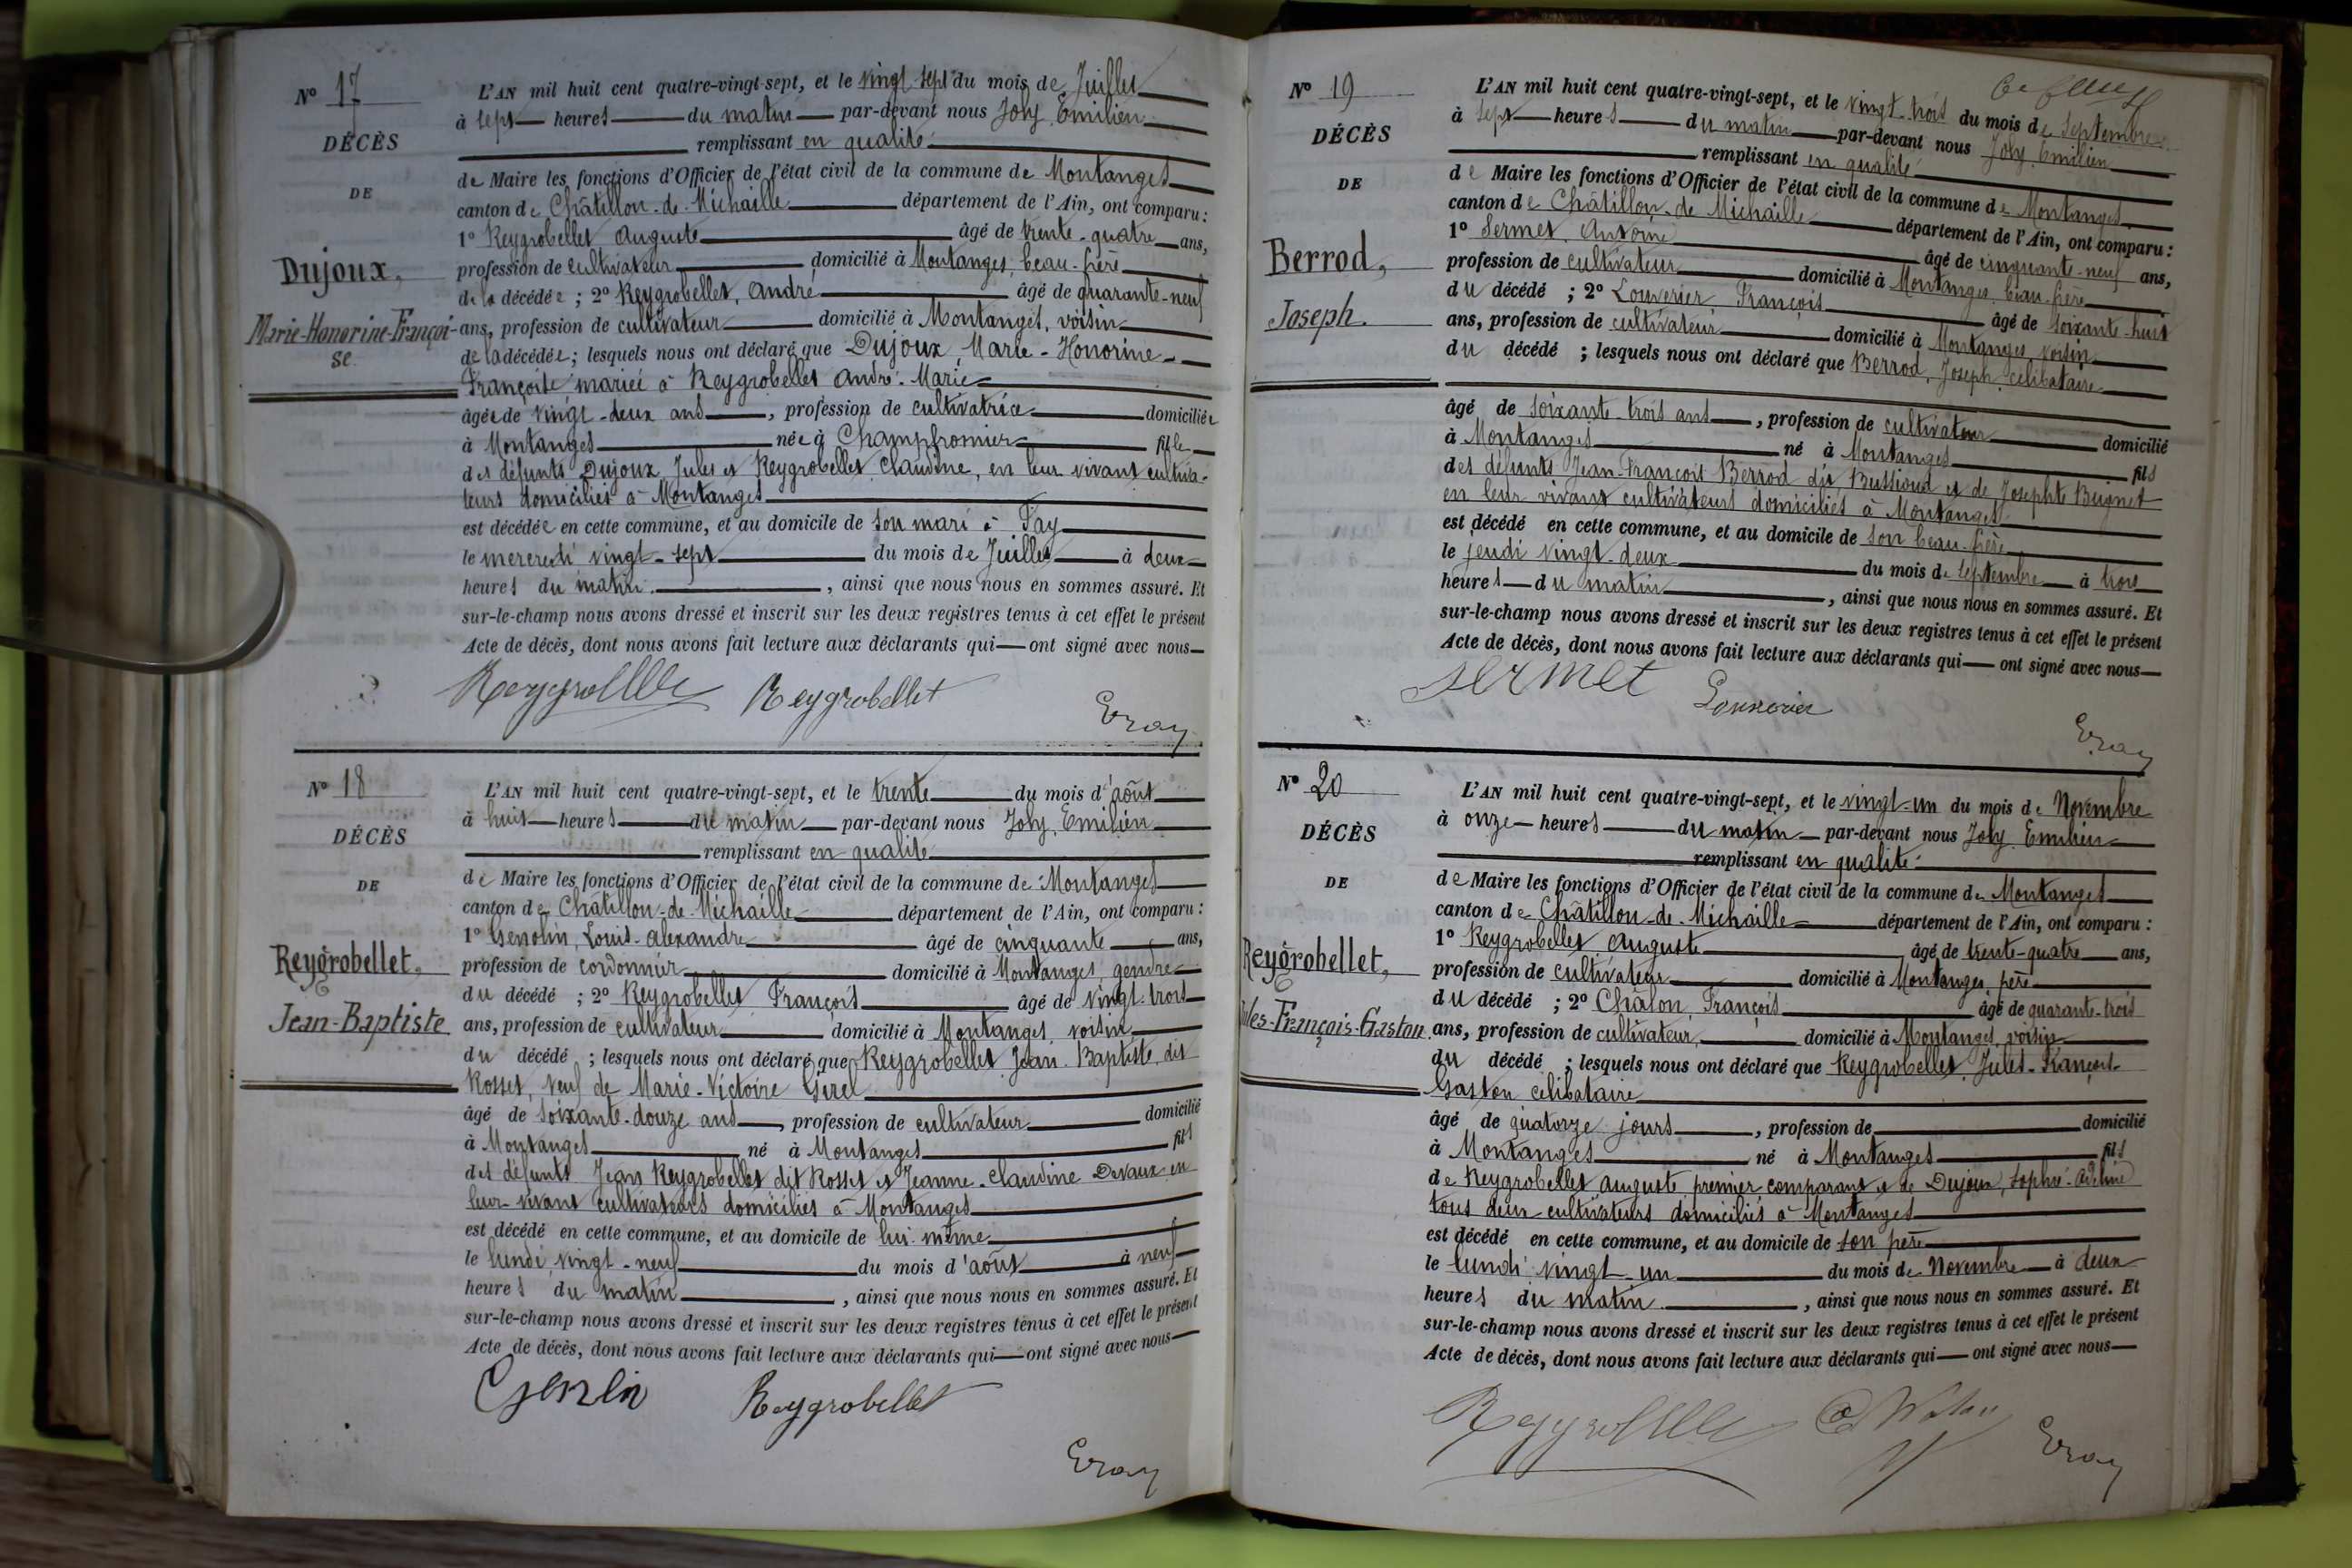 N° 17
DÉCÈS
DE
Dujoux,
Marie-Honorine-Françoi-
se
L'AN mil huit cent quatre-vingt-sept, et le vingt-sept du mois de Juillet
à sept heures du matin par-devant nous Joly Emilien
remplissant en qualité
de Maire les fonctions d'Officier de l'état civil de la commune de Montanges
canton de Châtillon-de-Michaille département de l'Ain, ont comparu :
1° Reygrobellet Auguste âgé de trente-quatre ans,
profession de cultivateur domicilié à Montanges, beau-frère
de la décédée ; 2° Reygrobellet, André âgé de quarante-neuf
ans, profession de cultivateur domicilié à Montanges, voisin
de la décédée ; lesquels nous ont déclaré que Dujoux, Marie-Honorine-
Françoise mariée à Reygrobellet André-Marie
âgée de vingt-deux ans, profession de cultivatrice domiciliée
à Montanges née à Champfromier fille
des défunts Dujoux Jules et Reygrobellet Claudine, en leur vivant cultiva-
teurs domiciliés à Montanges
est décédée en cette commune, et au domicile de son mari à Fay
le mercredi vingt-sept du mois de Juillet à deux
heures du matin, ainsi que nous nous en sommes assuré. Et
sur-le-champ nous avons dressé et inscrit sur les deux registres tenus à cet effet le présent
Acte de décès, dont nous avons fait lecture aux déclarants qui ont signé avec nous
Reygrobellet Reygrobellet
N° 18
DÉCÈS
DE
Reygrobellet,
Jean-Baptiste
L'AN mil huit cent quatre-vingt-sept, et le trente du mois d'août
à huit heures du matin par-devant nous Joly, Emilien
remplissant en qualité
de Maire les fonctions d'Officier de l'état civil de la commune de Montanges
canton de Châtillon-de-Michaille département de l'Ain, ont comparu :
1° Genolin, Louis-Alexandre âgé de cinquante ans,
profession de cordonnier domicilié à Montanges, gendre
du décédé ; 2° Reygrobellet François âgé de vingt-trois
ans, profession de cultivateur domicilié à Montanges, voisin
du décédé ; lesquels nous ont déclaré que Reygrobellet Jean-Baptiste, dit
Rosset, veuf de Marie-Victoire Girel
âgé de soixante-douze ans, profession de cultivateur domicilié
à Montanges né à Montanges fils
des défunts Jean Reygrobellet dit Rosset et Jeanne-Claudine Devaux en
leur vivant cultivateurs domiciliés à Montanges
est décédé en cette commune, et au domicile de lui-même
le lundi vingt-neuf du mois d'août à neuf
heures du matin, ainsi que nous nous en sommes assuré. Et
sur-le-champ nous avons dressé et inscrit sur les deux registres tenus à cet effet le présent
Acte de décès, dont nous avons fait lecture aux déclarants qui ont signé avec nous
Reygrobellet
N° 19
DÉCÈS
DE
Berrod,
Joseph.
L'AN mil huit cent quatre-vingt-sept, et le vingt-trois du mois de Septembre
à sept heures du matin par-devant nous Joly Emilien
remplissant en qualité
de Maire les fonctions d'Officier de l'état civil de la commune de Montanges
canton de Châtillon-de-Michaille département de l'Ain, ont comparu :
1° Sermet Antoine âgé de cinquante-neuf ans,
profession de cultivateur domicilié à Montanges, beau-frère
du décédé ; 2° Louverier François âgé de soixante-huit
ans, profession de cultivateur domicilié à Montanges, voisin
du décédé ; lesquels nous ont déclaré que Berrod, Joseph, célibataire
âgé de soixante-trois ans, profession de cultivateur domicilié
à Montanges né à Montanges fils
des défunts Jean-François Berrod dit Bussioud et de Josephte Buignet
en leur vivant cultivateurs domiciliés à Montanges
est décédé en cette commune, et au domicile de son beau-frère
le jeudi vingt-deux du mois de Septembre à trois
heures du matin, ainsi que nous nous en sommes assuré. Et
sur-le-champ nous avons dressé et inscrit sur les deux registres tenus à cet effet le présent
Acte de décès, dont nous avons fait lecture aux déclarants qui ont signé avec nous
Sermet Louverier
N° 20
DÉCÈS
DE
Reygrobellet,
Jules-François-Gaston
L'AN mil huit cent quatre-vingt-sept, et le vingt-un du mois de Novembre
à onze heures du matin par-devant nous Joly Emilien
remplissant en qualité
de Maire les fonctions d'Officier de l'état civil de la commune de Montanges
canton de Châtillon-de-Michaille département de l'Ain, ont comparu :
1° Reygrobellet Auguste âgé de trente-quatre ans,
profession de cultivateur domicilié à Montanges, père
du décédé ; 2° Châlon, François âgé de quarante-trois
ans, profession de cultivateur domicilié à Montanges, voisin
du décédé ; lesquels nous ont déclaré que Reygrobellet Jules-François-
Gaston célibataire
âgé de quatorze jours, profession de domicilié
à Montanges né à Montanges fils
de Reygrobellet Auguste premier comparant et de Dujoux, Sophie-Adeline
tous deux cultivateurs domiciliés à Montanges
est décédé en cette commune, et au domicile de son père
le lundi vingt-un du mois de Novembre à deux
heures du matin, ainsi que nous nous en sommes assuré. Et
sur-le-champ nous avons dressé et inscrit sur les deux registres tenus à cet effet le présent
Acte de décès, dont nous avons fait lecture aux déclarants qui ont signé avec nous
Reygrobellet